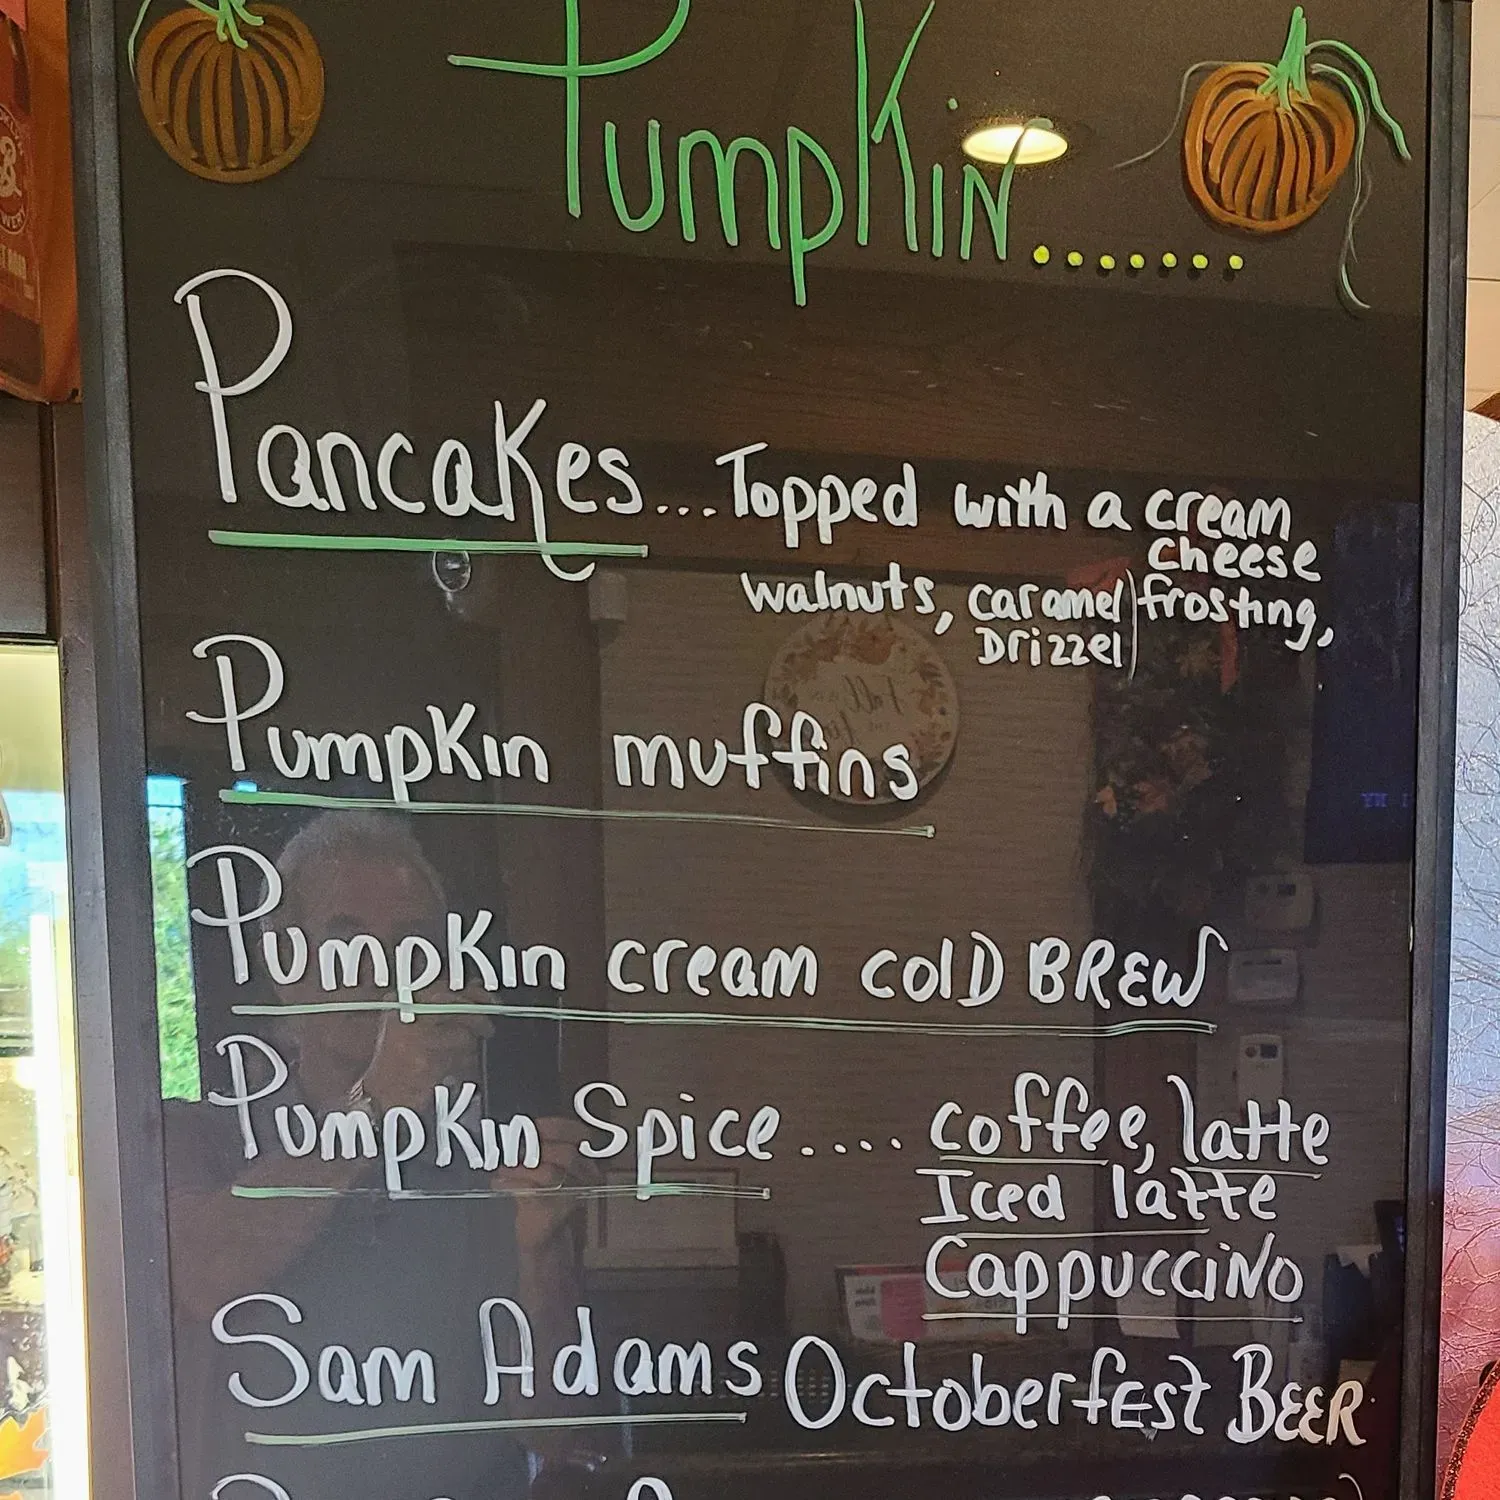 Pumpkin.......
Pancakes...Topped with a cream
cheese
walnuts, caramel frosting,
Drizzel
Pumpkin muffins
Pumpkin cream cold BREW
Pumpkin Spice.... coffee, latte
Iced latte
Cappuccino
Sam Adams OctoberfEst BEER